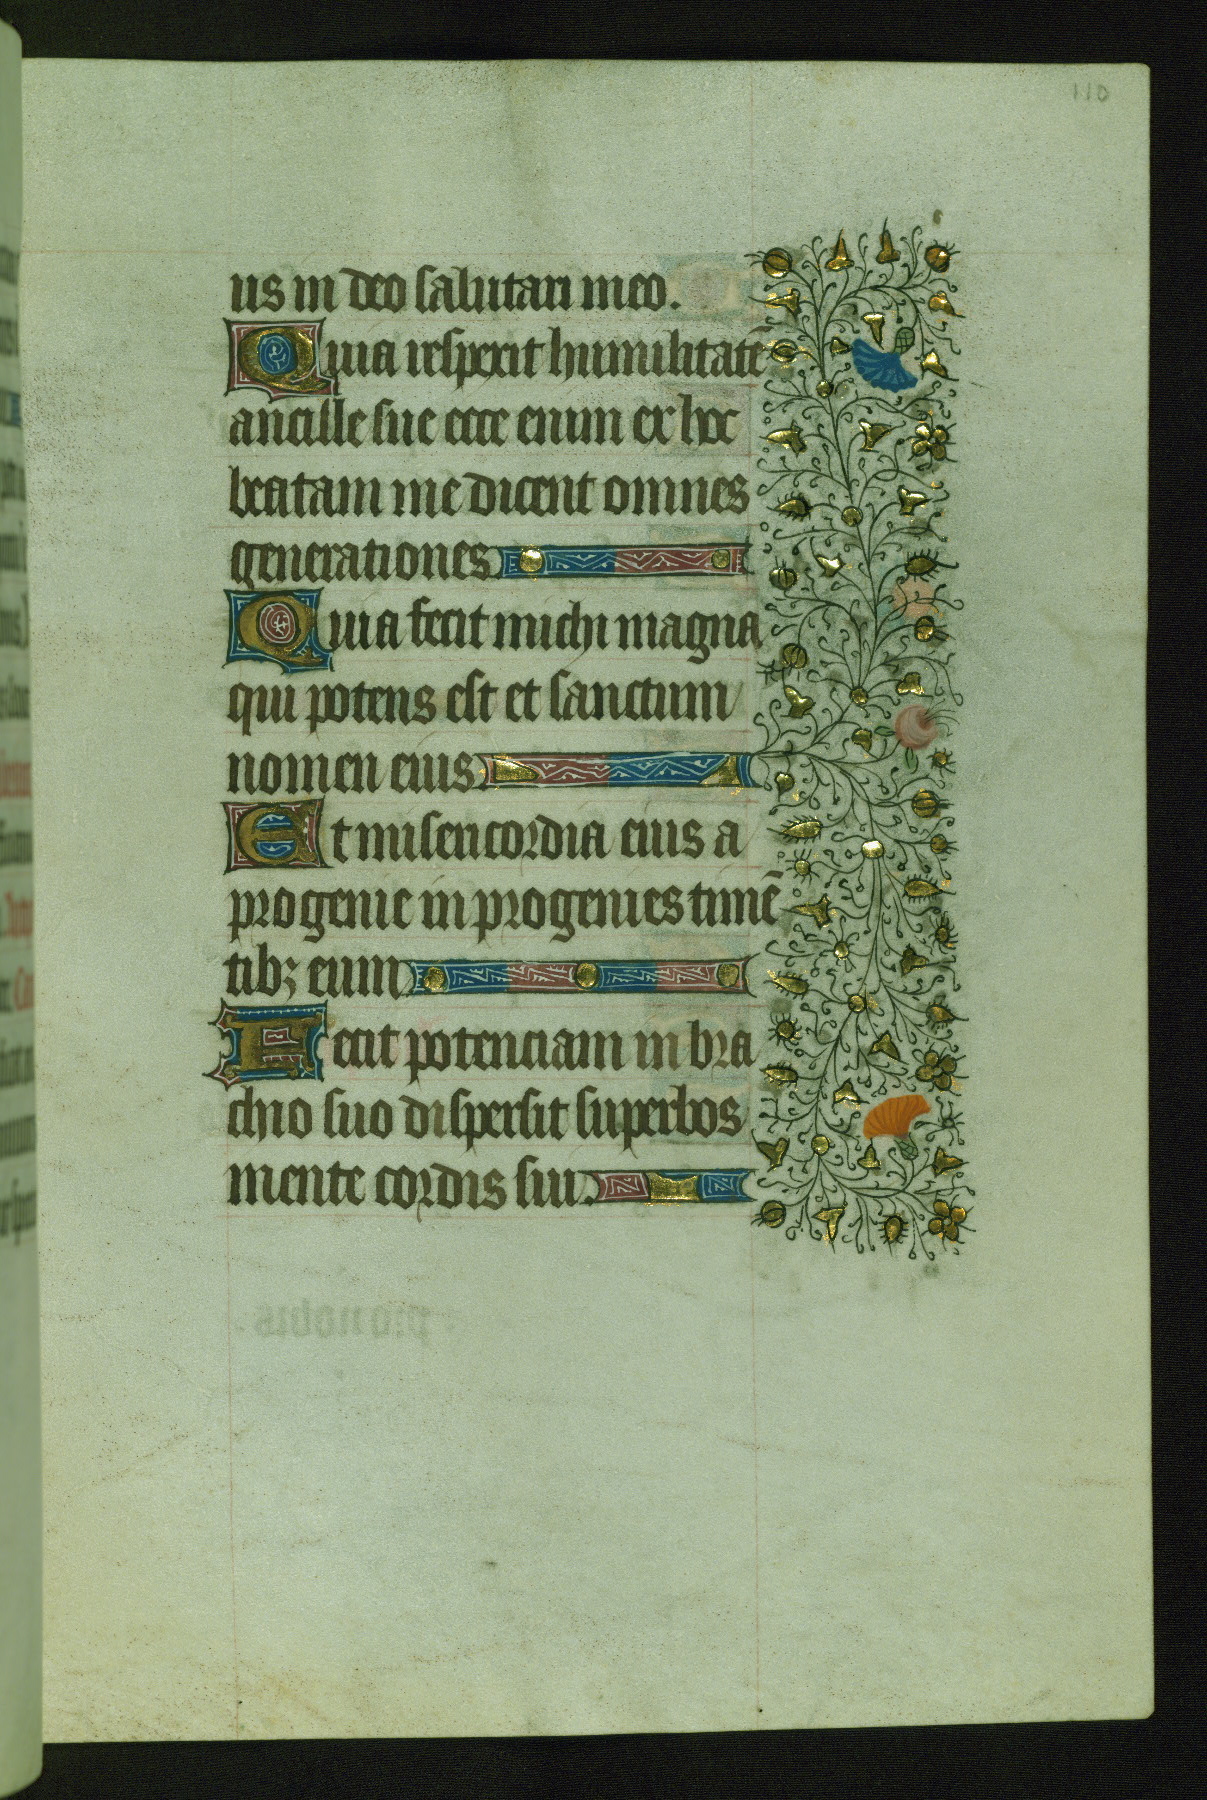 110
us in deo salutari meo.
Quia respexit humilitatē
ancille sue ecce enim ex hoc
beatam me dicent omnes
generationes
Quia fecit michi magna
qui potens est et sanctum
nomen eius
Et misericordia eius a
progenie in progenies timē
tibꝫ eum
Fecit potenciam in bra
chio suo dispersit superbos
mente cordis sui.
pro nobis.